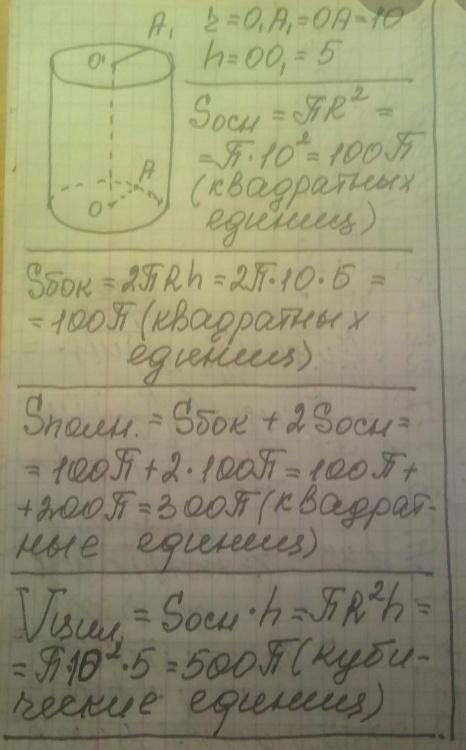 A₁
O¹
A
O
r = O₁A₁ = OA = 10
h = OO₁ = 5
Sосн = ПR² =
= П·10² = 100П
(квадратных
единиц)
Sбок = 2ПRh = 2П·10·5 =
= 100П (квадратных
единиц)
Sполн. = Sбок + 2Sосн =
= 100П + 2·100П = 100П +
+ 200П = 300П (квадрат-
ные единиц)
Vцил. = Sосн·h = ПR²h =
= П10²·5 = 500П (куби-
ческие единиц)